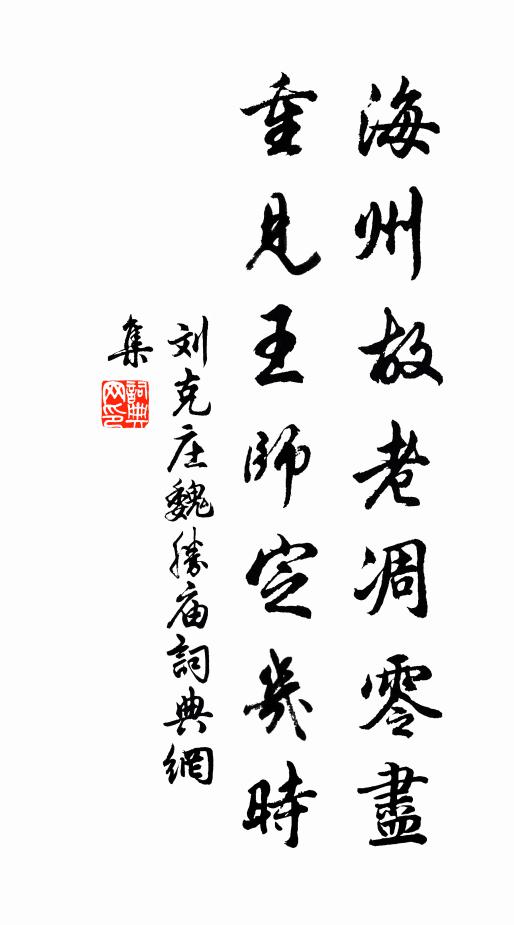 海州故老凋零盡
重見王師定幾時
刘克庄魏勝庙詞典網
集
詞典
网印